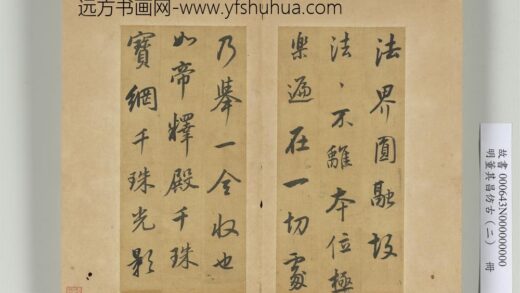 远方书画网-www.yfshuhua.com
法界圓融故
法、不離本位極
樂遍在一切處
乃舉一全收也
如帝釋殿千珠
寶網千珠光影
故書 000643N000000000
明董其昌仿古（二） 冊